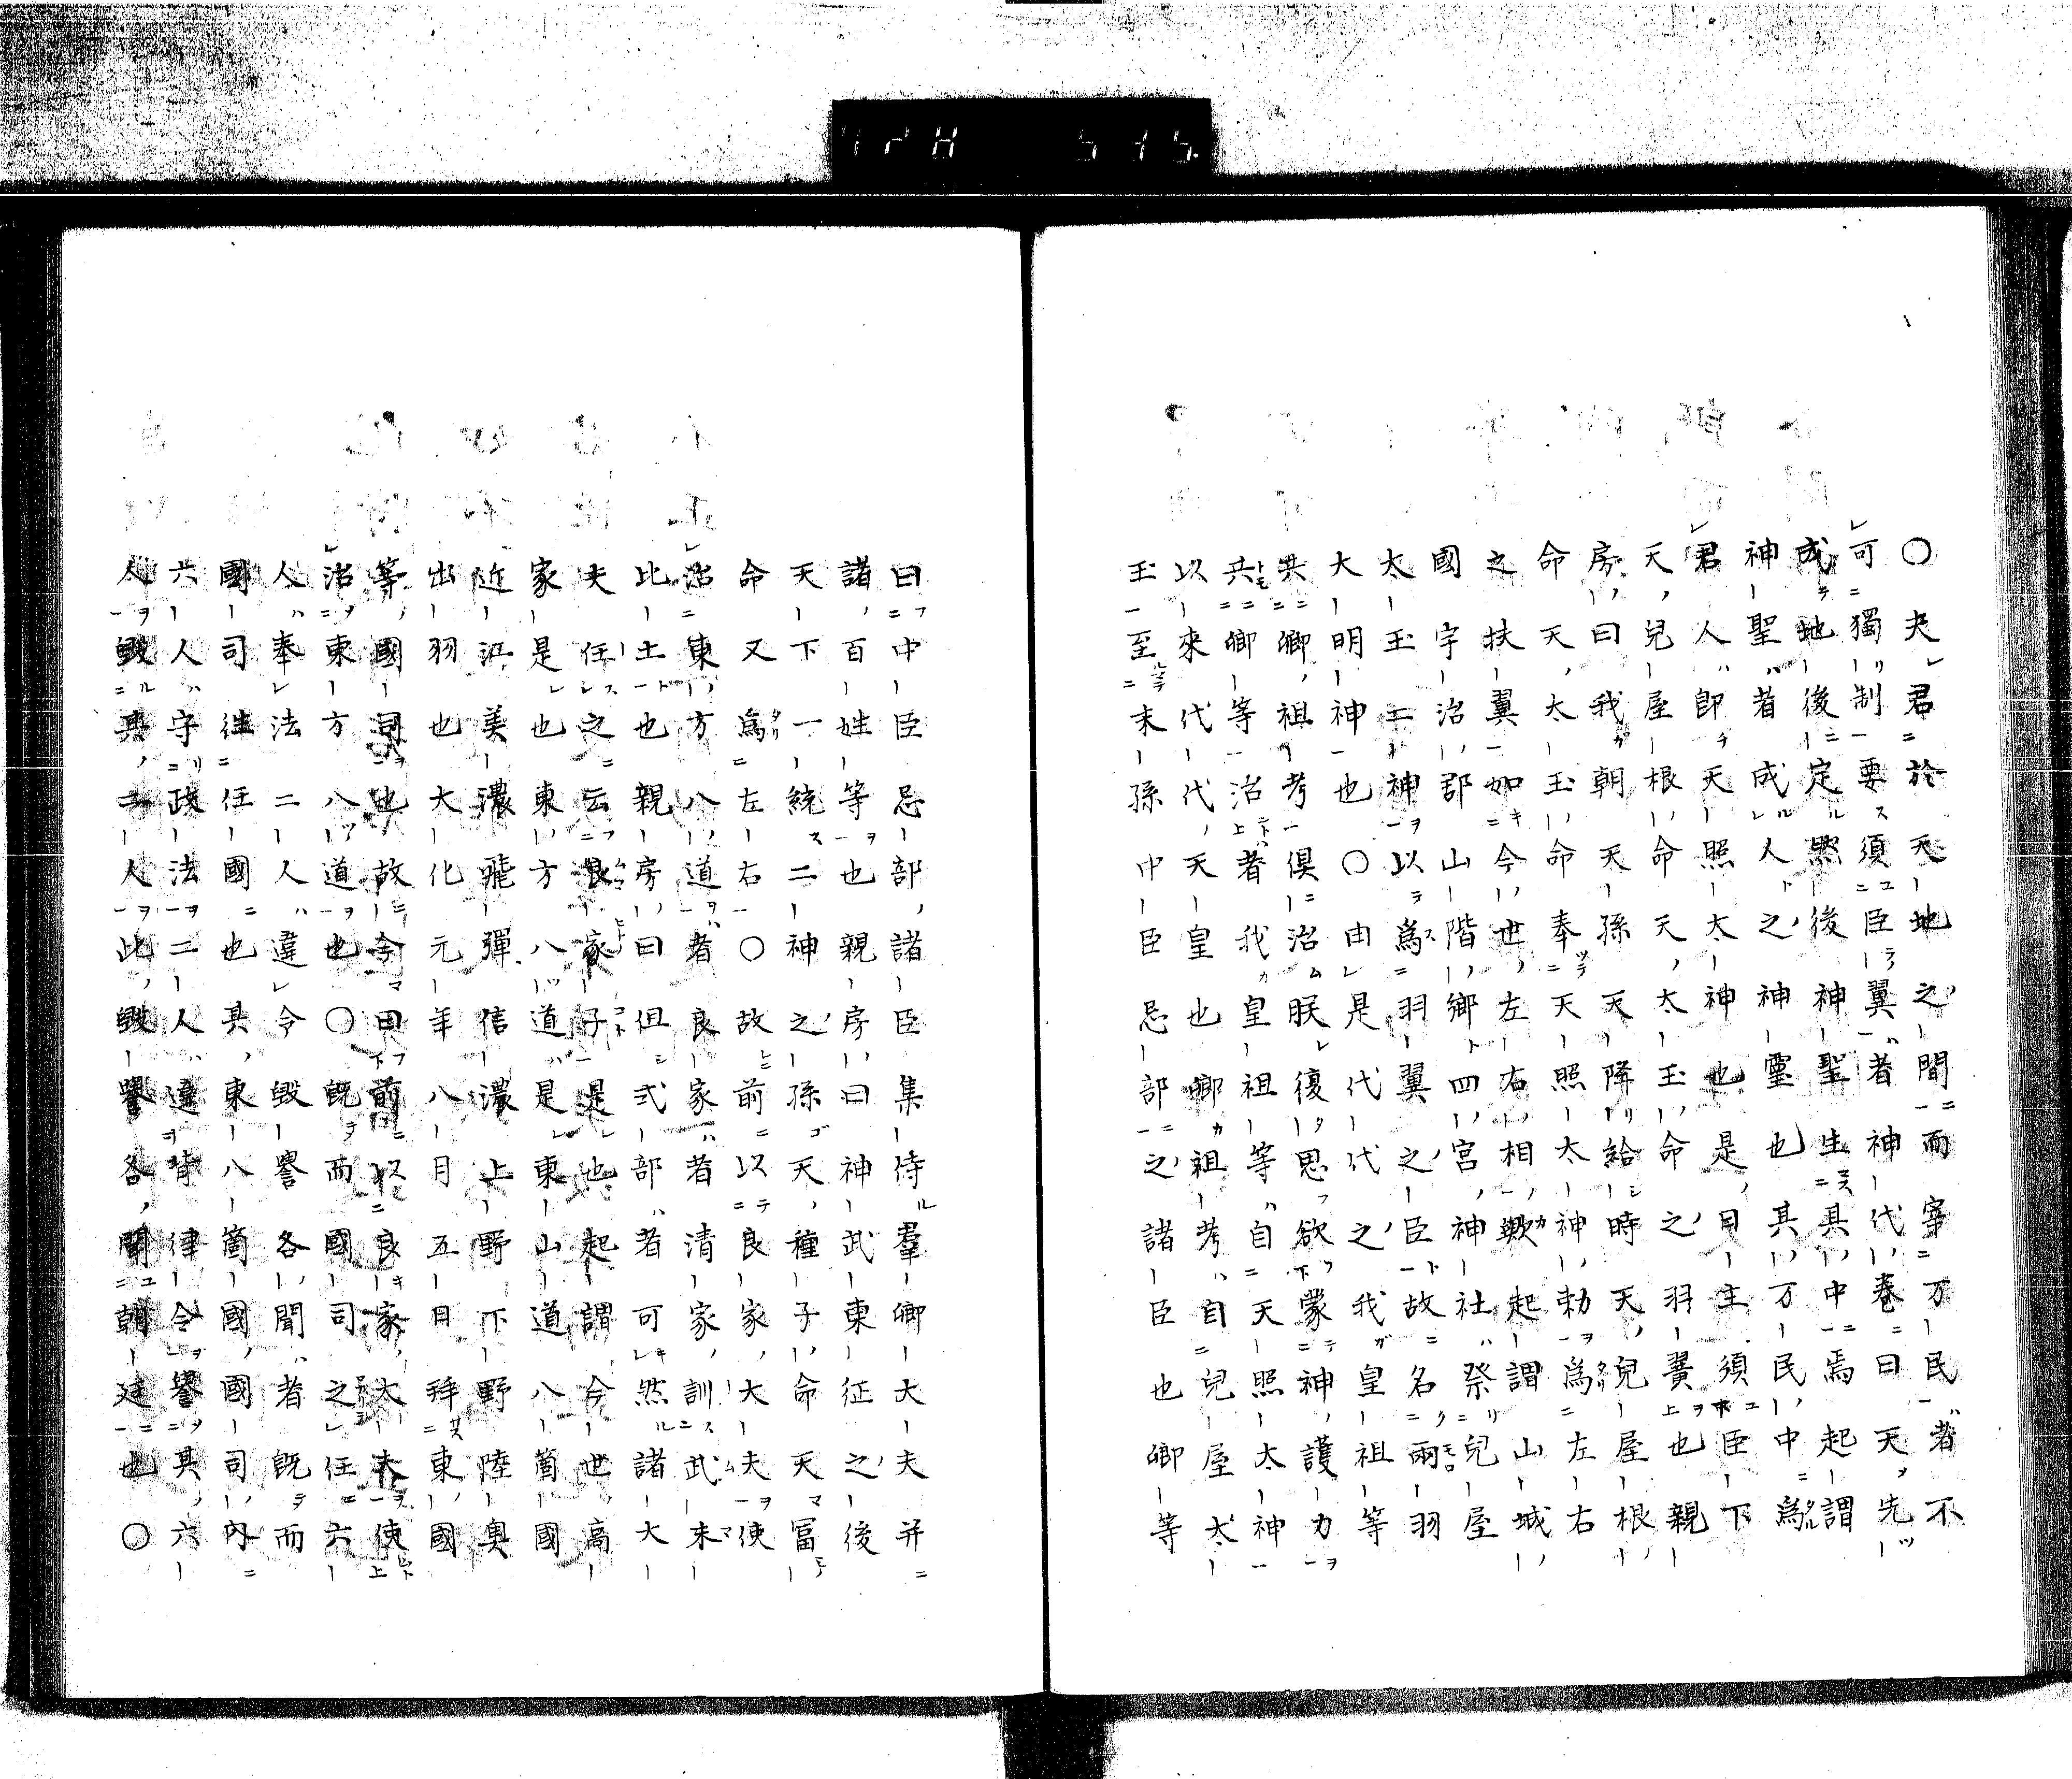 〇夫君於天地之間而宰万民者不
可獨制要須臣翼者神代卷曰天先
成地後定然後神聖生其中焉起謂
神聖者成人之神靈也其万民中為
君人即天照太神也是日主須臣下
天兒屋根命天太玉命之羽翼也親
房曰我朝天孫天降給時天兒屋根
命天太玉命奉天照太神勅為左右
之扶翼如今世左右相歟起謂山城
國宇治郡山階鄉四宮神社祭兒屋
太玉二神以為羽翼之臣故名兩羽
大明神也〇由是代代之我皇祖等
共卿祖考俱治朕復思欲蒙神護力
共卿等治者我皇祖等自天照太神
以來代代天皇也卿祖考自兒屋太
玉至末孫中臣忌部之諸臣也卿等
曰中臣忌部諸臣集侍羣卿大夫并
諸百姓等也親房曰神武東征之後
天下一統二神之孫天種子命天冨
命又為左右〇故前以良家大夫使
治東方八道者良家者清家訓武末
比土也親房曰但弍部者可然諸大
夫任之云良家子是也起謂今世高
家是也東方八道是東山道八箇國
近江美濃飛彈信濃上野下野陸奥
出羽也大化元年八月五日拜東國
等國司也故今曰前以良家大夫使
治東方八道也〇既而國司之任六
人奉法二人違令毀譽各聞者既而
國司徃任國也其東八箇國國司内
六人守政法二人違背律令譽其六
人毀其二人此毀譽各聞朝廷也〇